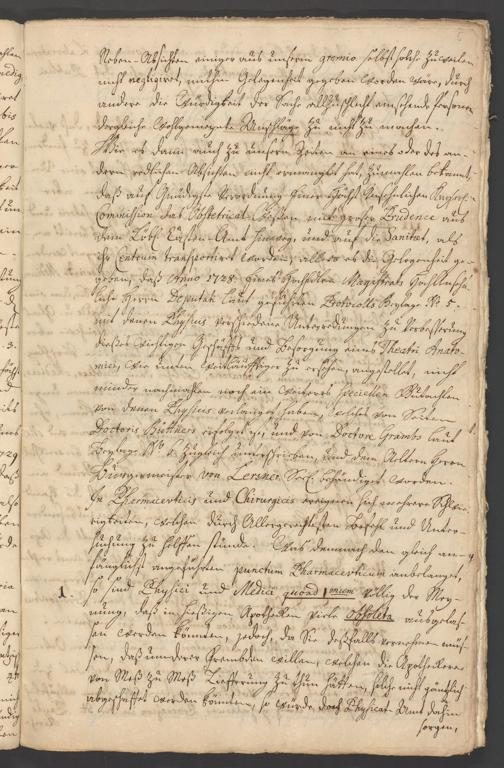 Neben-Absichten einiger aus unserm gremio selbst solche zuweilen
nicht negligiret, mithin Gelegenheit gegeben worden wäre, durch
andere die Würdigkeit der Sache allzuschlecht ansehende Personen
dergleichen wohlgemeynte Vorschläge zu nicht zu machen.
Wie es dann auch zu unsern Zeiten an eines oder des an-
dern redlichen Absichten nicht ermangelt hat, zumahlen bekannt,
daß auf Gnädigste Verordnung einer Höchst Ansehnlichen Kayserl.
Commission das Obstetricat Wesen mit großer Prudence aus
dem Löbl. Casten-Amt hinweg und auf die Sanitæt, als
ihr Centrum transportiret worden, allwo es die Gelegenheit ge-
geben, daß Anno 1728. Eines Hochedlen Magistrats Hochansehn-
liche Herrn Deputati laut geführten Protocolls Beylage N. 5.
mit denen Physicis verschiedene Unterredungen zu Verbesserung
dieses wichtigen Geschäffts und Besorgung eines Theatri Anato-
mici, wie innen weitläuffiger zu ersehen, angestellet, nicht
minder nachmahlen noch ein weiteres specielles Gutachten
von denen Physicis verlanget haben, welches von Seiten
Doctoris Büttners erfolget ist, und von Doctore Grambs laut
Beylage N. 6. zugleich unterschrieben, und dem Aeltern Herrn
Burgermeister von Lersner Seel. behändiget worden.
In Pharmaceuticis und Chirurgicis ereignen sich mehrere Schwie-
rigkeiten, welchen durch Allergerechtesten Befehl und Unter-
suchung zu helffen stünde. Was demnach den gleich an-
fänglich angeführten punctum Pharmaceuticum anbelanget,
1. so sind Physici und Medici quoad 1mum völlig der Mey-
nung, daß in hiesigen Apothecken viele Obsoleta ausgelas-
sen werden könnten, jedoch, da Sie desfalls vernehmen müs-
sen, daß um derer Frembden willen, welchen die Apotheckere
von Meß zu Meß Lieffrung zu thun hätten, solche nicht gäntzlich
abgeschaffet werden könnten, so würde das Physicat-Amt dahin
sorgen,